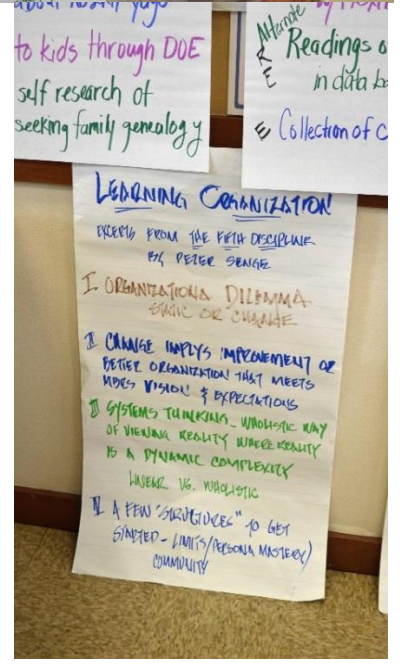 to kids through DOE
self research of
seeking family genealogy
Alternate
R
E
E
Readings
in data
Collection of C
LEARNING ORGANIZATION
EXCERPTS FROM THE FIFTH DISCIPLINE
BY PETER SENGE
I ORGANIZATIONA DILEMMA
STATIC OR CHANGE
II CHANGE IMPLYS IMPROVEMENT OR
BETTER ORGANIZATION THAT MEETS
MBRS VISION & EXPECTATIONS
III SYSTEMS THINKING - WHOLISTIC WAY
OF VIEWING REALITY WHERE REALITY
IS A DYNAMIC COMPLEXITY
LINEAR VS. WHOLISTIC
IV A FEW "STRUCTURES" TO GET
STARTED - LIMITS/PERSONA MASTERY/
COMMUNITY